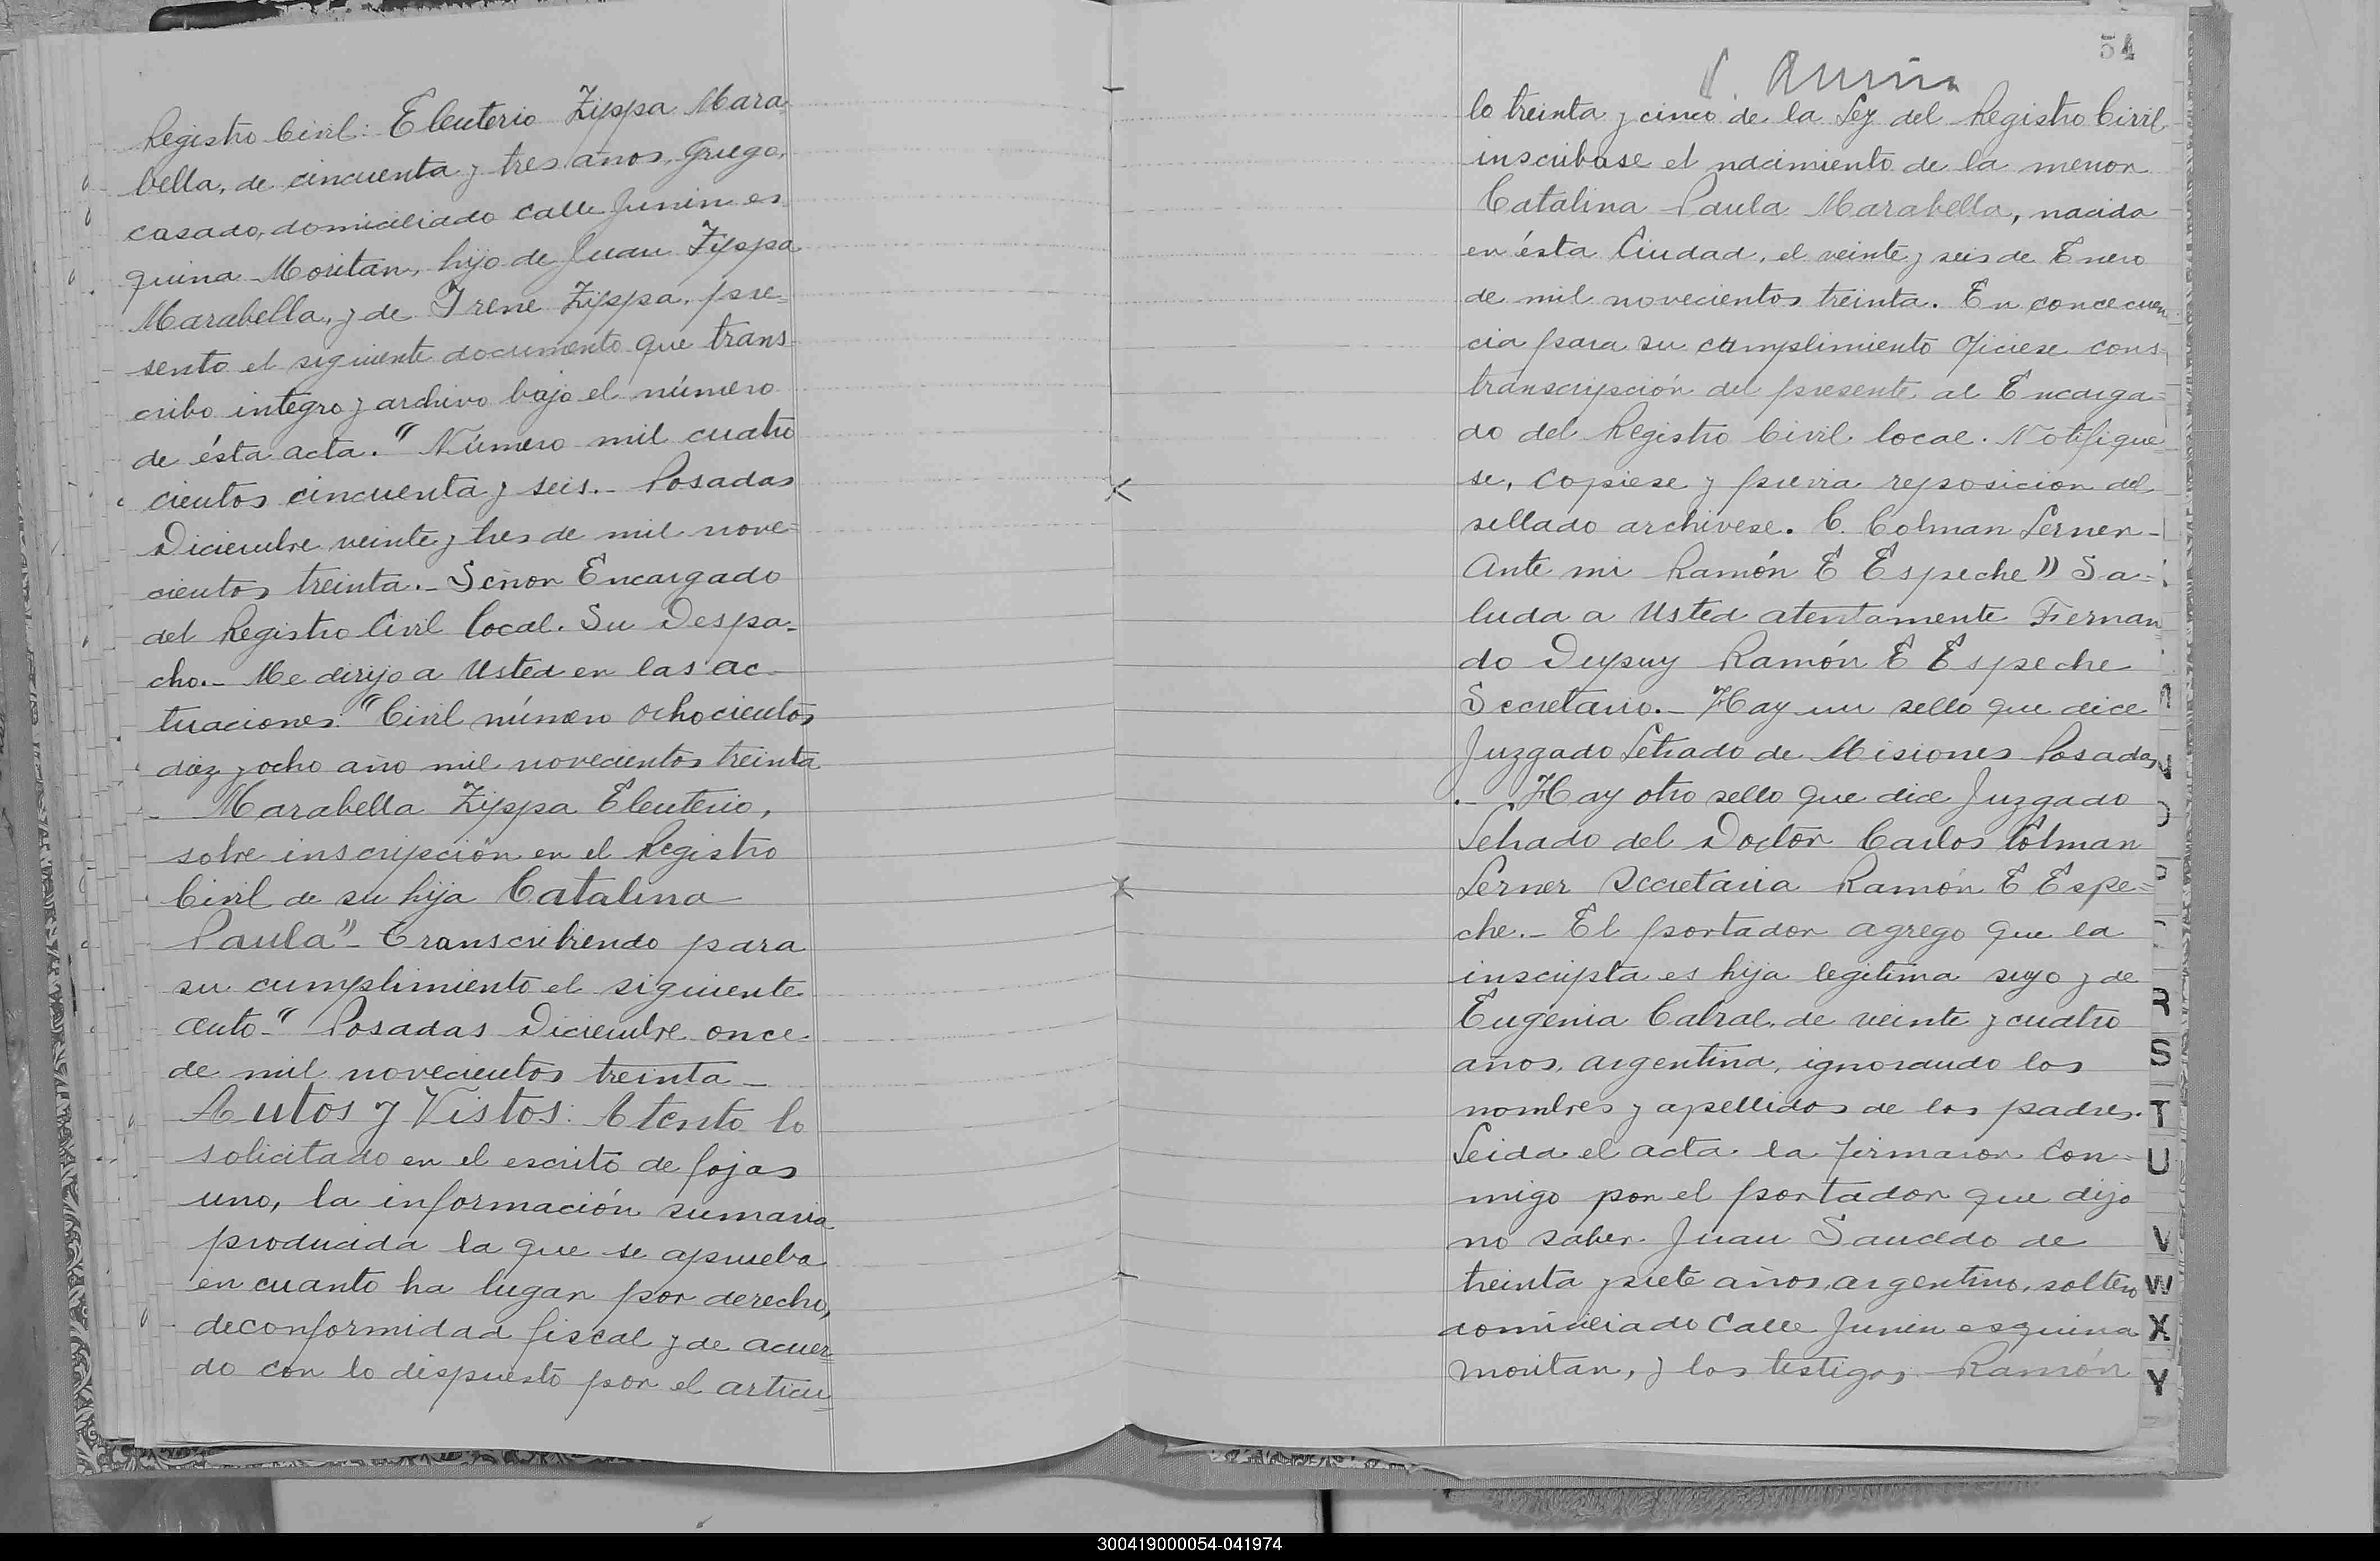 Registro Civil: Eleuterio Zippa Mara-
bella, de cincuenta y tres años, Griego,
casado, domiciliado calle Junin es
quina Moritan, hijo de Juan Zippa
Marabella, y de Irene Zippa, pre=
sento el siguiente documento que trans=
cribo integro y archivo bajo el número
de ésta acta. "Número mil cuatro
cientos cincuenta y seis.- Posadas
Diciembre veinte y tres de mil nove=
cientos treinta.- Señor Encargado
del Registro Civil local. Su Despa-
cho.- Me dirijo a Usted en las ac-
tuaciones: "Civil número ochocientos
diez y ocho año mil novecientos treinta
- Marabella Zippa Eleuterio,
sobre inscripción en el Registro
Civil de su hija Catalina
Paula"- Transcribiendo para
su cumplimiento el siguiente
auto-" Posadas Diciembre once
de mil novecientos treinta-
Autos y Vistos: Atento lo
solicitado en el escrito de fojas
uno, la información sumaria
producida la que se aprueba
en cuanto ha lugar por derecho,
deconformidad fiscal y de acuer=
do con lo dispuesto por el articu=
54
lo treinta y cinco de la Ley del Registro Civil
inscribase el nacimiento de la menor
Catalina Paula Marabella, nacida
en ésta Ciudad, el veinte y seis de Enero
de mil novecientos treinta. En concecuen
cia para su cumplimiento oficiese cons=
transcripción del presente al Encarga=
do del Registro Civil local. Notifique=
se, copiese y previa reposicion del
sellado archivese. C. Colman Lerner-
Ante mi Ramón E Espeche" Sa=
luda a Usted atentamente Fernan=
do Dupuy Ramón E Espeche
Secretario.- Hay un sello que dice
Juzgado Letrado de Misiones Posadas
.- Hay otro sello que dice Juzgado
Letrado del Doctor Carlos Colman
Lerner Secretaria Ramón E Espe=
che.- El portador agrego que la
inscripta es hija legitima suyo y de
Eugenia Cabral, de veinte y cuatro
años, argentina, ignorando los
nombres y apellidos de los padres.
Leida el acta la firmaron con=
migo por el portador que dijo
no saber Juan Saucedo de
treinta y siete años, argentino, soltero
domiciliado Calle Junin esquina
moritan, y los testigos Ramón
R
S
T
U
V
W
X
Y
300419000054-041974